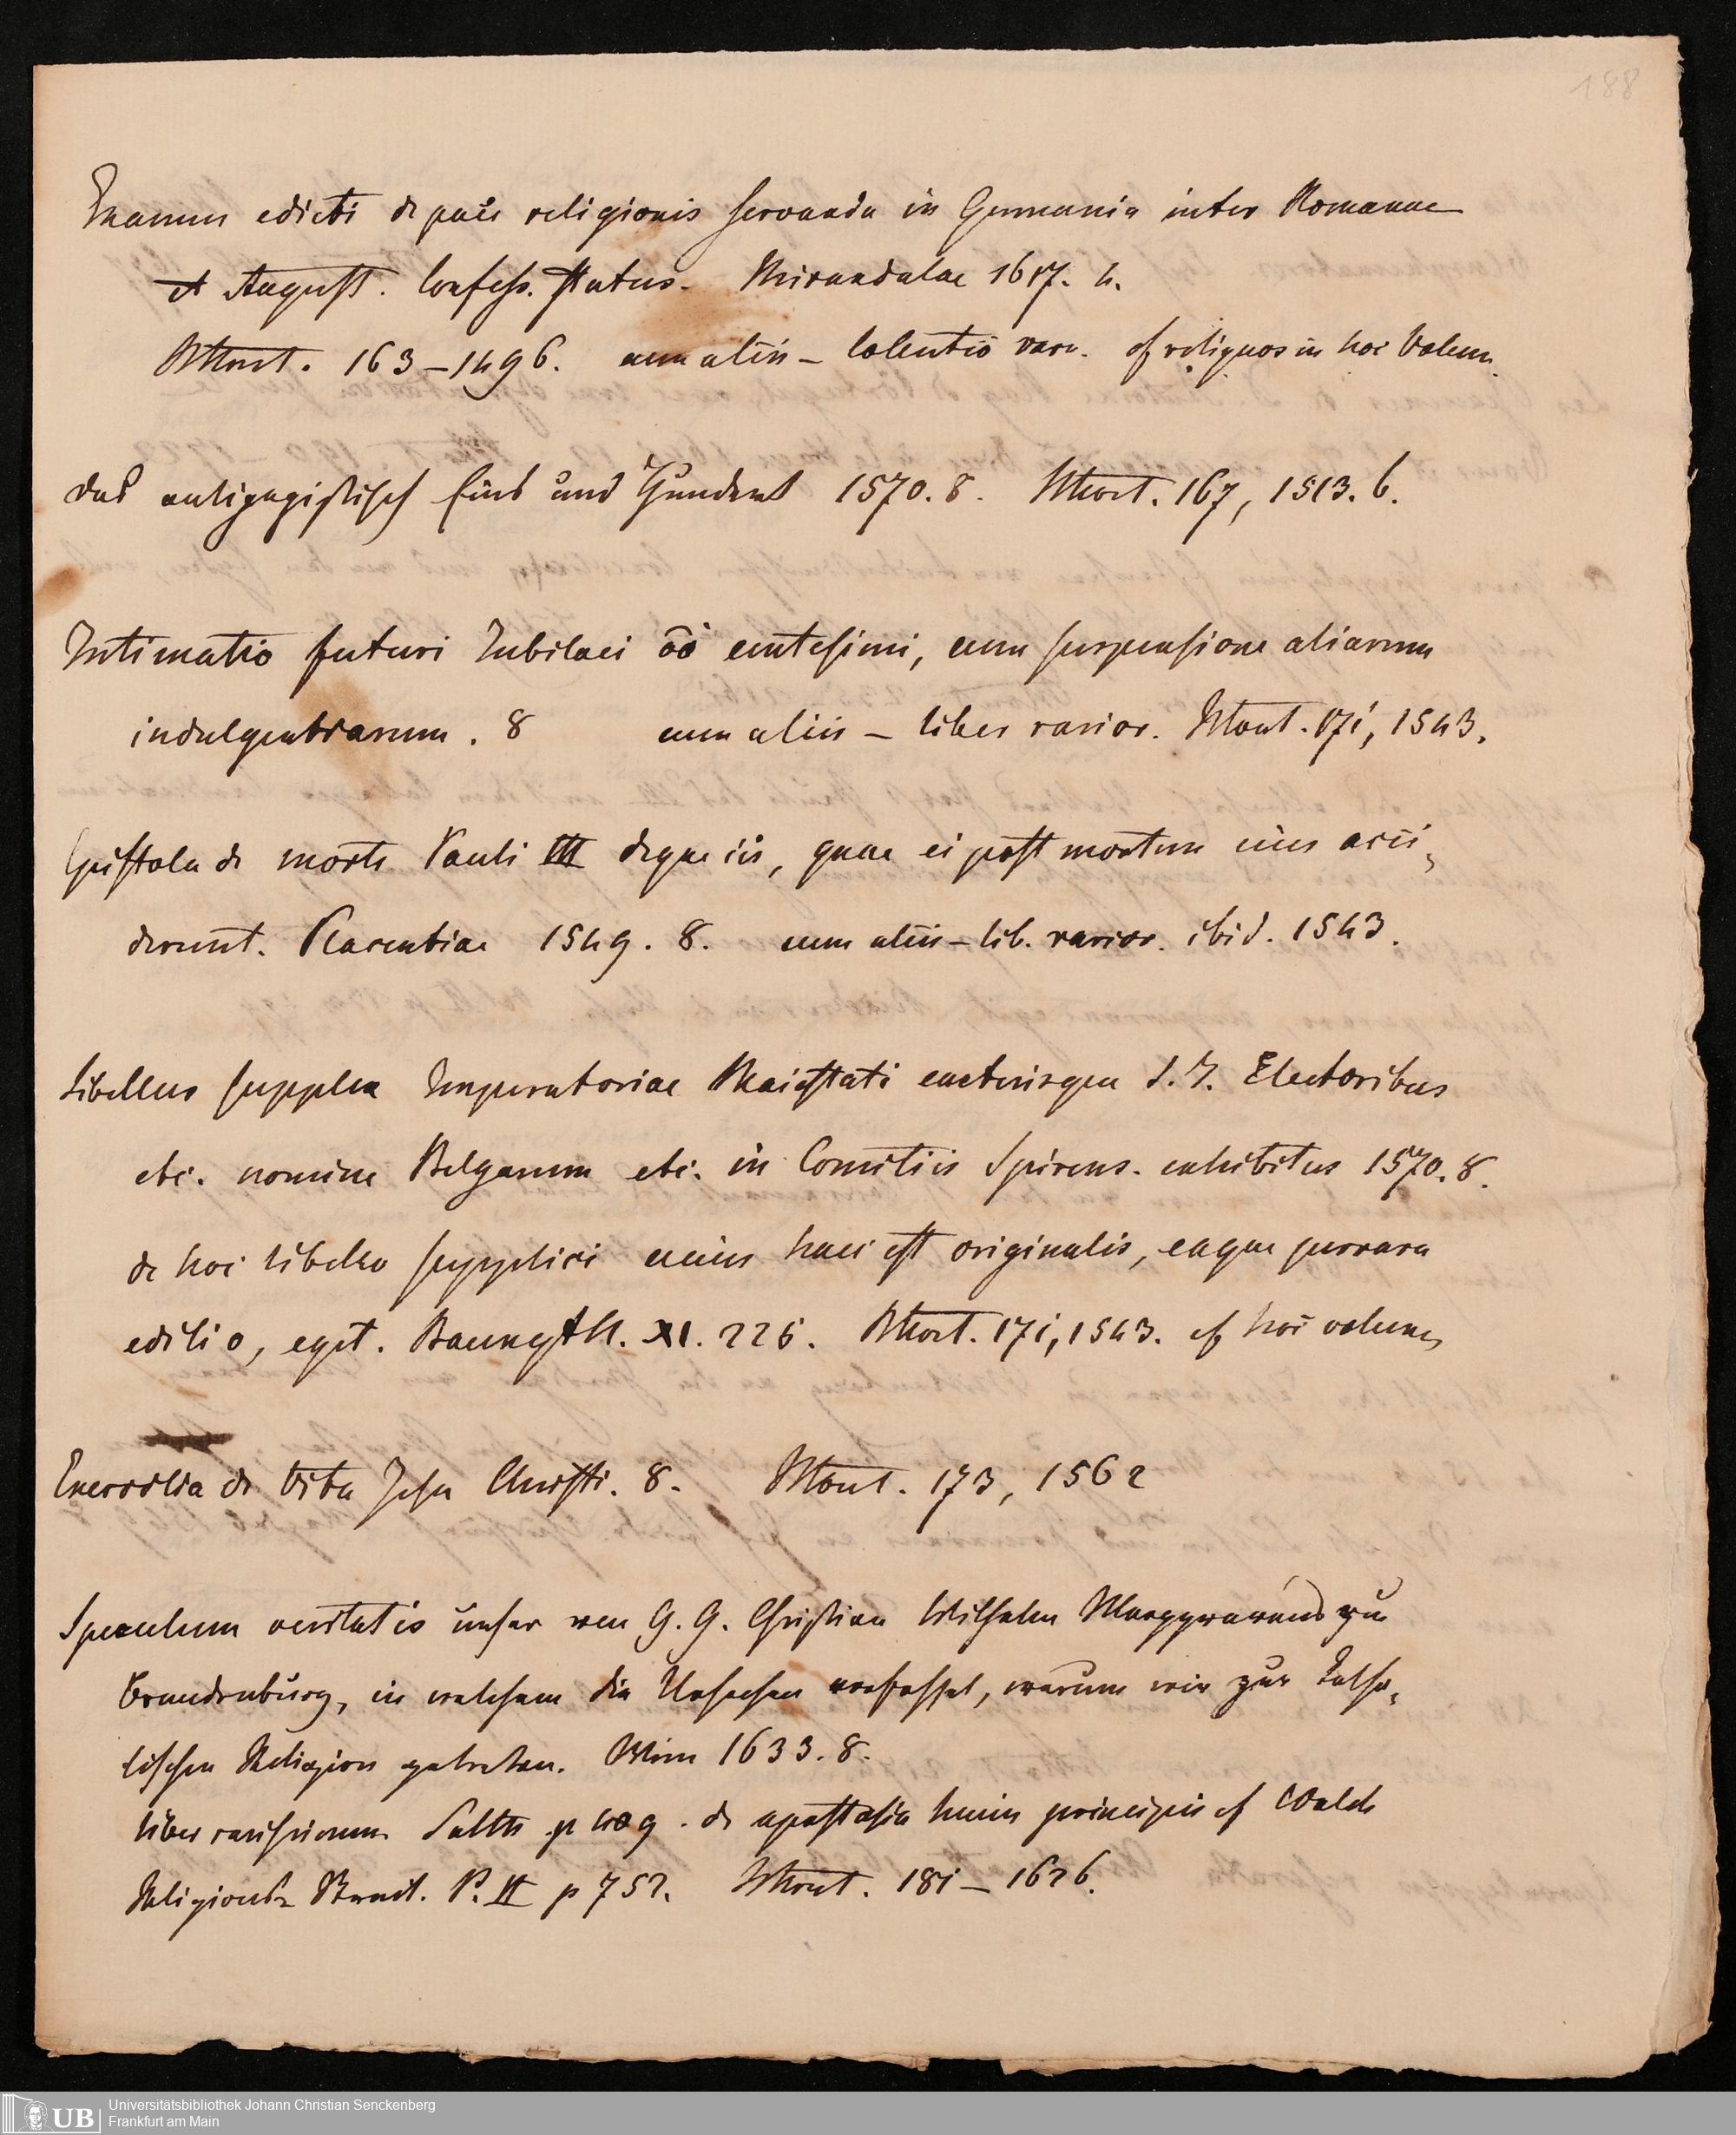 188
Examen edicti de pace religionis servanda in Germania inter Romanae
et August. Confess. status. Mirandulae 1617. 4.
Mscrt. 163 – 1496. cum aliis – collectio rara. cf reliquos in hoc Volum.
das antipapistisch Eins und Hundert 1570. 8. 167, 1513. 6.
Intimatio futuri Jubilaei centesimi, cum suspensione aliarum
indulgentiarum. 8 cum aliis – liber rarior. 171, 1543.
Epistola de morte Pauli III deque iis, quae ei post mortem eius acci-
derunt. Placentiae 1549. 8. cum aliis – lib. rarior. ibid. 1543.
Libellus supplex Imperatoriae Maiestati caeterisque S. I. Electoribus
etc. nomine Belgarum etc. in Comitiis Spirens. exhibitus 1570. 8.
de hoc libello supplici cuius haec est originalis, eaque perrara
editio, egit. Baumgth. XI. 226. 171, 1543. cf hoc volumen
Exercitia de Vita Jesu Christi. 8. 173, 1562
Speculum veritatis unser von G. G. Christian Wilhelm Marggrawens zu
Brandenburg, in welchem die Ursachen verfasset, warum wir zur Catho-
lischen Religion getreten. Wien 1633. 8.
liber rarissimus Salth p 409. de apostasia huius principis cf Walch
Religions Streit. P. II p 752. 181 – 1626.
UB
Universitätsbibliothek Johann Christian Senckenberg
Frankfurt am Main